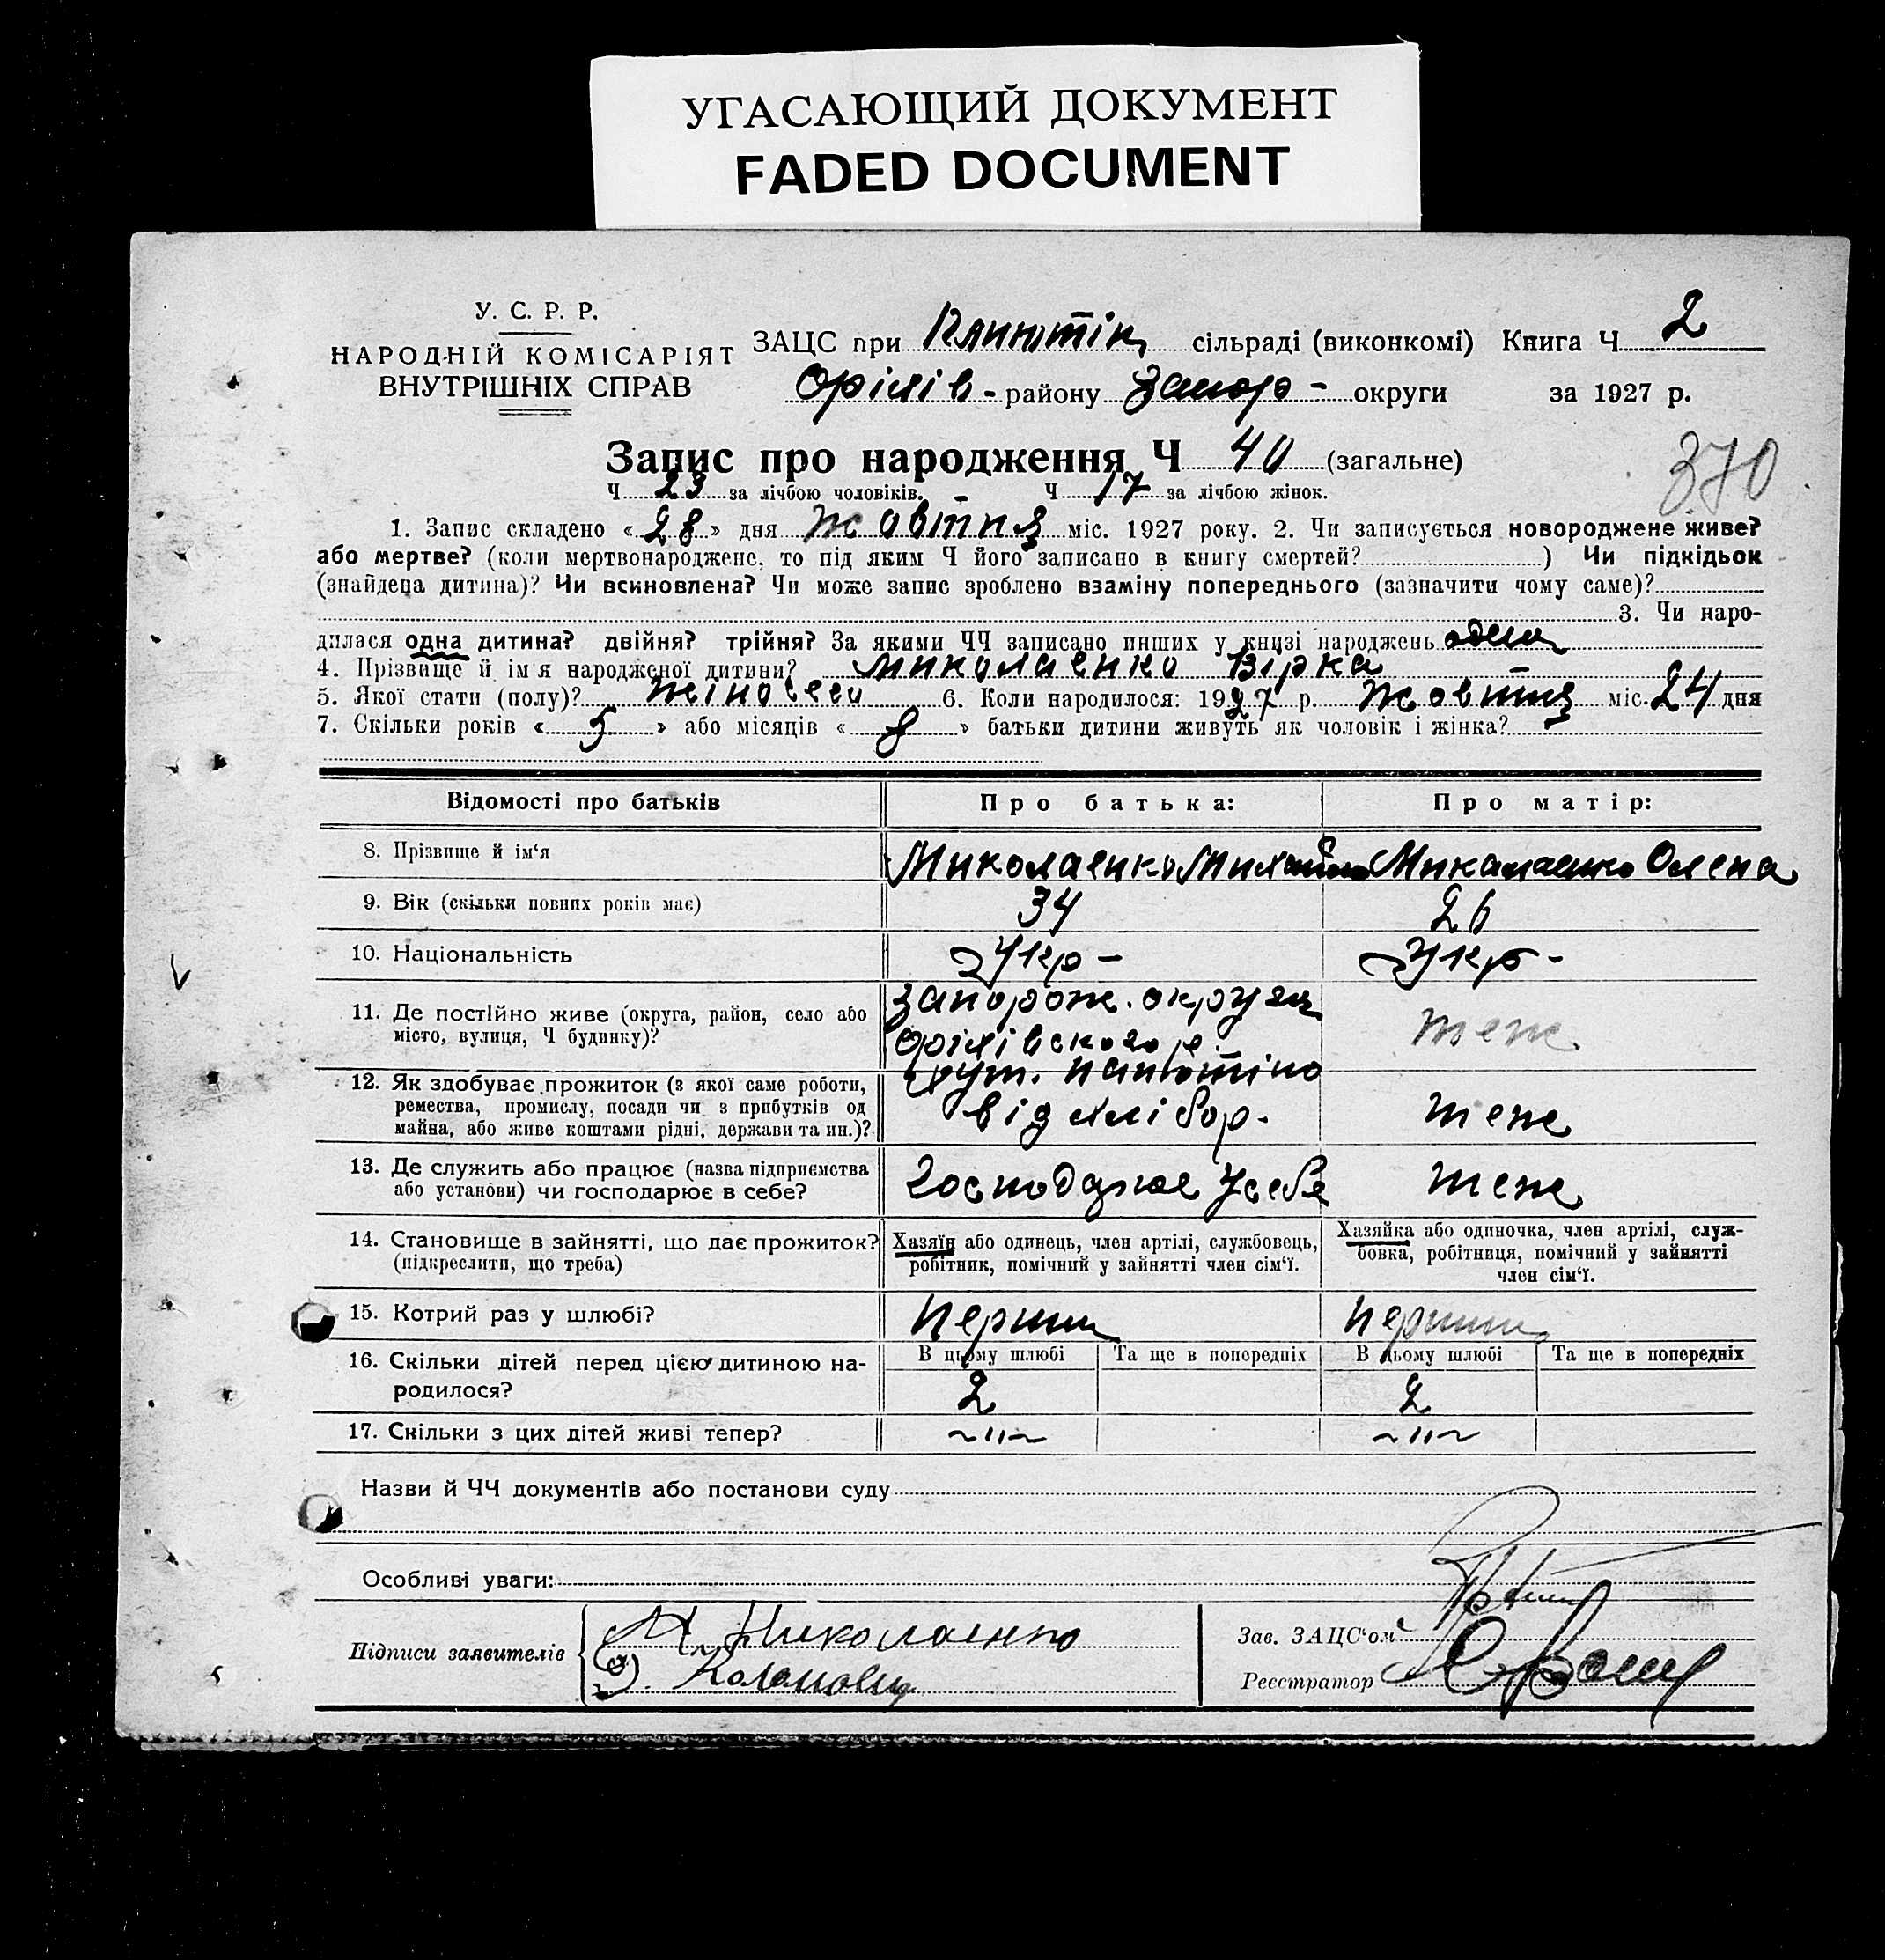 УГАСАЮЩИЙ ДОКУМЕНТ
FADED DOCUMENT
У. С. Р. Р.
НАРОДНІЙ КОМІСАРІЯТ
ВНУТРІШНІХ СПРАВ
ЗАЦС при сільраді (виконкомі) Книга Ч 2
Оріхів- району Запор- округи за 1927 р.
Запис про народження Ч 40 (загальне)
370
Ч 23 за лічбою чоловіків. Ч 17 за лічбою жінок.
1. Запис складено «28» дня Жовтня міс. 1927 року. 2. Чи записується новороджене живе?
або мертве? (коли мертвонароджене, то під яким Ч його записано в книгу смертей? ) Чи підкідьок
(знайдена дитина)? Чи всиновлена? Чи може запис зроблено взаміну попереднього (зазначити чому саме)?
3. Чи наро-
дилася одна дитина? двійня? трійня? За якими ЧЧ записано инших у книзі народжень
4. Прізвище й ім'я народженої дитини? Миколаенко Вірка
5. Якої стати (полу)? 6. Коли народилося: 1927 р. Жовтня міс. 24 дня
7. Скільки років « 5 » або місяців « 8 » батьки дитини живуть як чоловік і жінка?
Відомості про батьків Про батька: Про матір:
8. Прізвище й ім'я Миколаенко Михайло Миколаенко Олена
9. Вік (скільки повних років має) 34 26
10. Національність Укр- Укр-
11. Де постійно живе (округа, район, село або
місто, вулиця, Ч будинку)?
Запорож. округи
Оріхівского р.
хут. Панютіно
теж
12. Як здобуває прожиток (з якої саме роботи,
ремества, промислу, посади чи з прибутків од
майна, або живе коштами рідні, держави та ин.)?
від хлібор. теж
13. Де служить або працює (назва підприємства
або установи) чи господарює в себе?
Господарює у себе теж
14. Становище в зайнятті, що дає прожиток?
(підкреслити, що треба)
Хазяїн або одинець, член артілі, службовець,
робітник, помічний у зайнятті член сім'ї.
Хазяйка або одиночка, член артілі, служ-
бовка, робітниця, помічний у зайнятті
член сім'ї.
15. Котрий раз у шлюбі?
16. Скільки дітей перед цією дитиною на-
родилося?
В цьому шлюбі Та ще в попередніх В цьому шлюбі Та ще в попередніх
2 2
17. Скільки з цих дітей живі тепер? ~ıı~ ~ıı~
Назви й ЧЧ документів або постанови суду
Особливі уваги:
Підписи заявителів
М. Николаенко
Зав. ЗАЦС'ом
Реєстратор